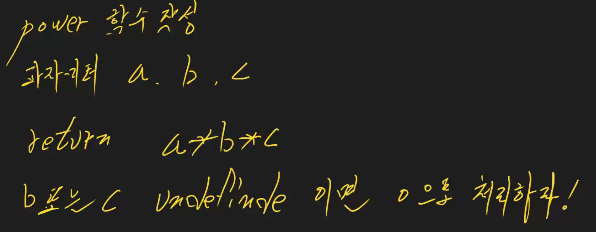 power 함수 작성
파라미터 a, b, c
return a*b*c
b 또는 c undefinde 이면 0으로 처리하자!